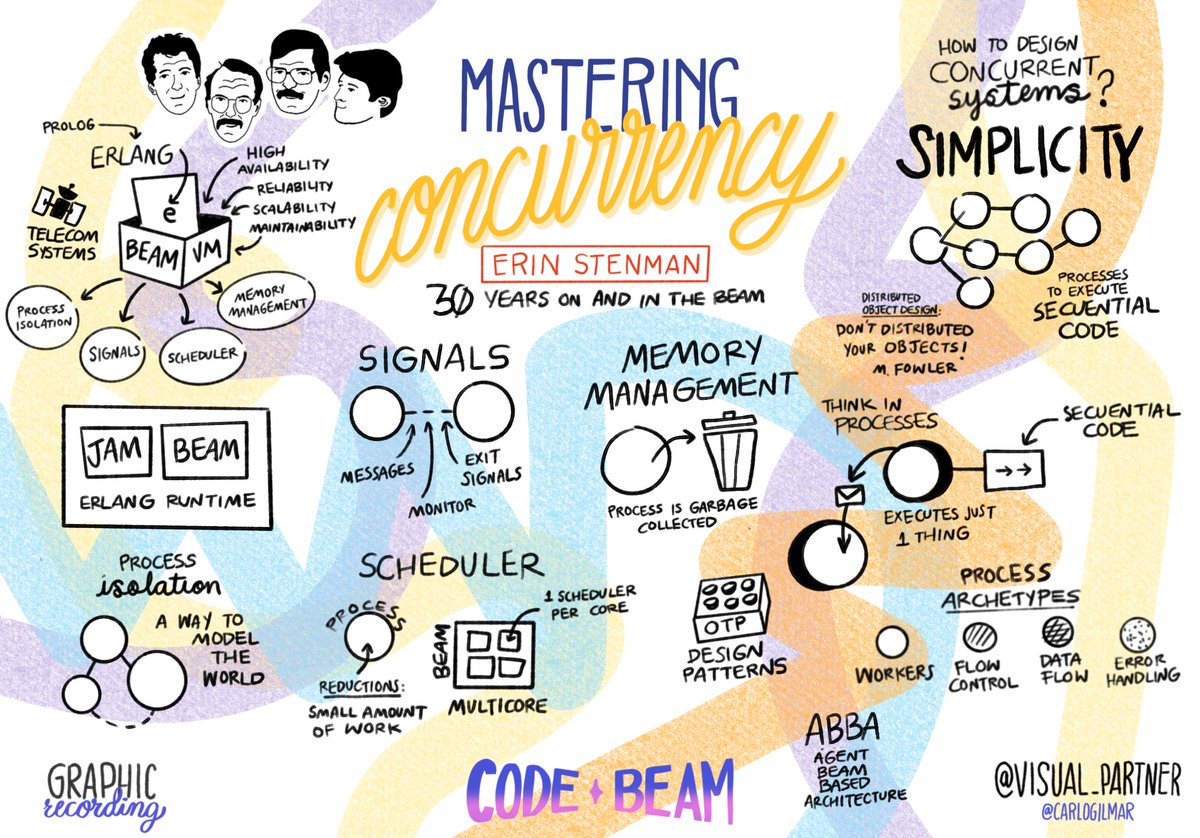 MASTERING
concurrency
ERIN STENMAN
30 YEARS ON AND IN THE BEAM
PROLOG
ERLANG
HIGH
AVAILABILITY
RELIABILITY
SCALABILITY
MAINTAINABILITY
TELECOM
SYSTEMS
e
BEAM VM
PROCESS
ISOLATION
SIGNALS
SCHEDULER
MEMORY
MANAGEMENT
JAM BEAM
ERLANG RUNTIME
PROCESS
isolation
A WAY TO
MODEL
THE
WORLD
SIGNALS
MESSAGES
MONITOR
EXIT
SIGNALS
SCHEDULER
PROCESS
REDUCTIONS:
SMALL AMOUNT
OF WORK
BEAM
1 SCHEDULER
PER CORE
MULTICORE
MEMORY
MANAGEMENT
PROCESS IS GARBAGE
COLLECTED
OTP
DESIGN
PATTERNS
HOW TO DESIGN
CONCURRENT
systems?
SIMPLICITY
PROCESSES
TO EXECUTE
SECUENTIAL
CODE
DISTRIBUTED
OBJECT DESIGN:
DON'T DISTRIBUTED
YOUR OBJECTS!
M. FOWLER
THINK IN
PROCESSES
SECUENTIAL
CODE
EXECUTES JUST
1 THING
PROCESS
ARCHETYPES
WORKERS
FLOW
CONTROL
DATA
FLOW
ERROR
HANDLING
ABBA
AGENT
BEAM
BASED
ARCHITECTURE
GRAPHIC
recording
CODE BEAM
@VISUAL_PARTNER
@CARLOGILMAR